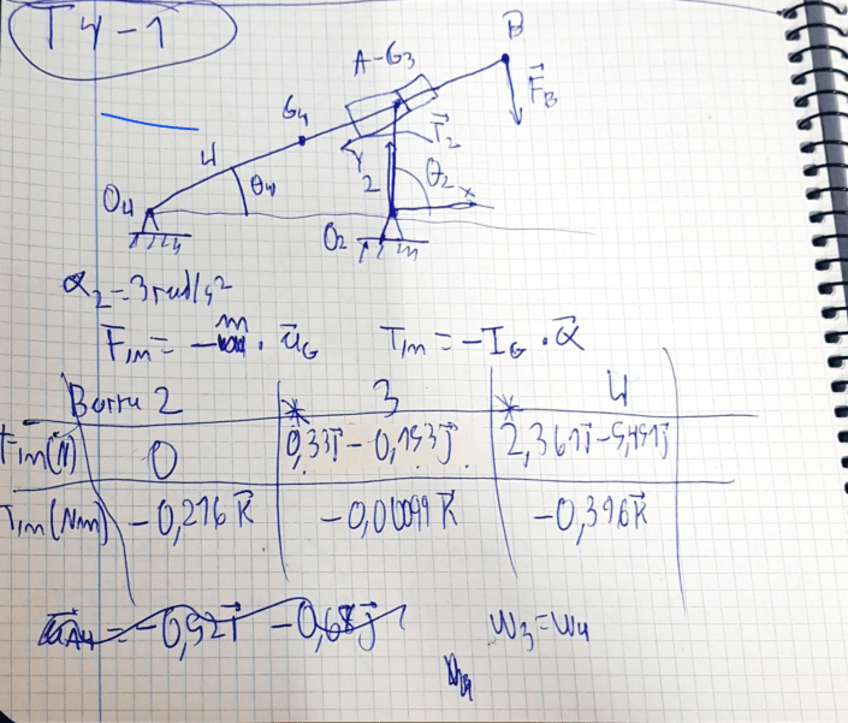 T4-1
B
A-G3
F⃗B
G4
T⃗2
4
Y
2
θ4
θ2
x
O4
O2
α2=3rad/s²
F̄in = -m · āG    Tin = -IG · ᾱ
Barra 2    * 3    * 4
Fin(N)    0    0,33i⃗ - 0,153j⃗    2,361i⃗ - 5,451j⃗
Tin(Nm)    -0,216 k⃗    -0,00099 k⃗    -0,396k⃗
aA4 = -0,52i⃗ - 0,68j⃗    W3=W4